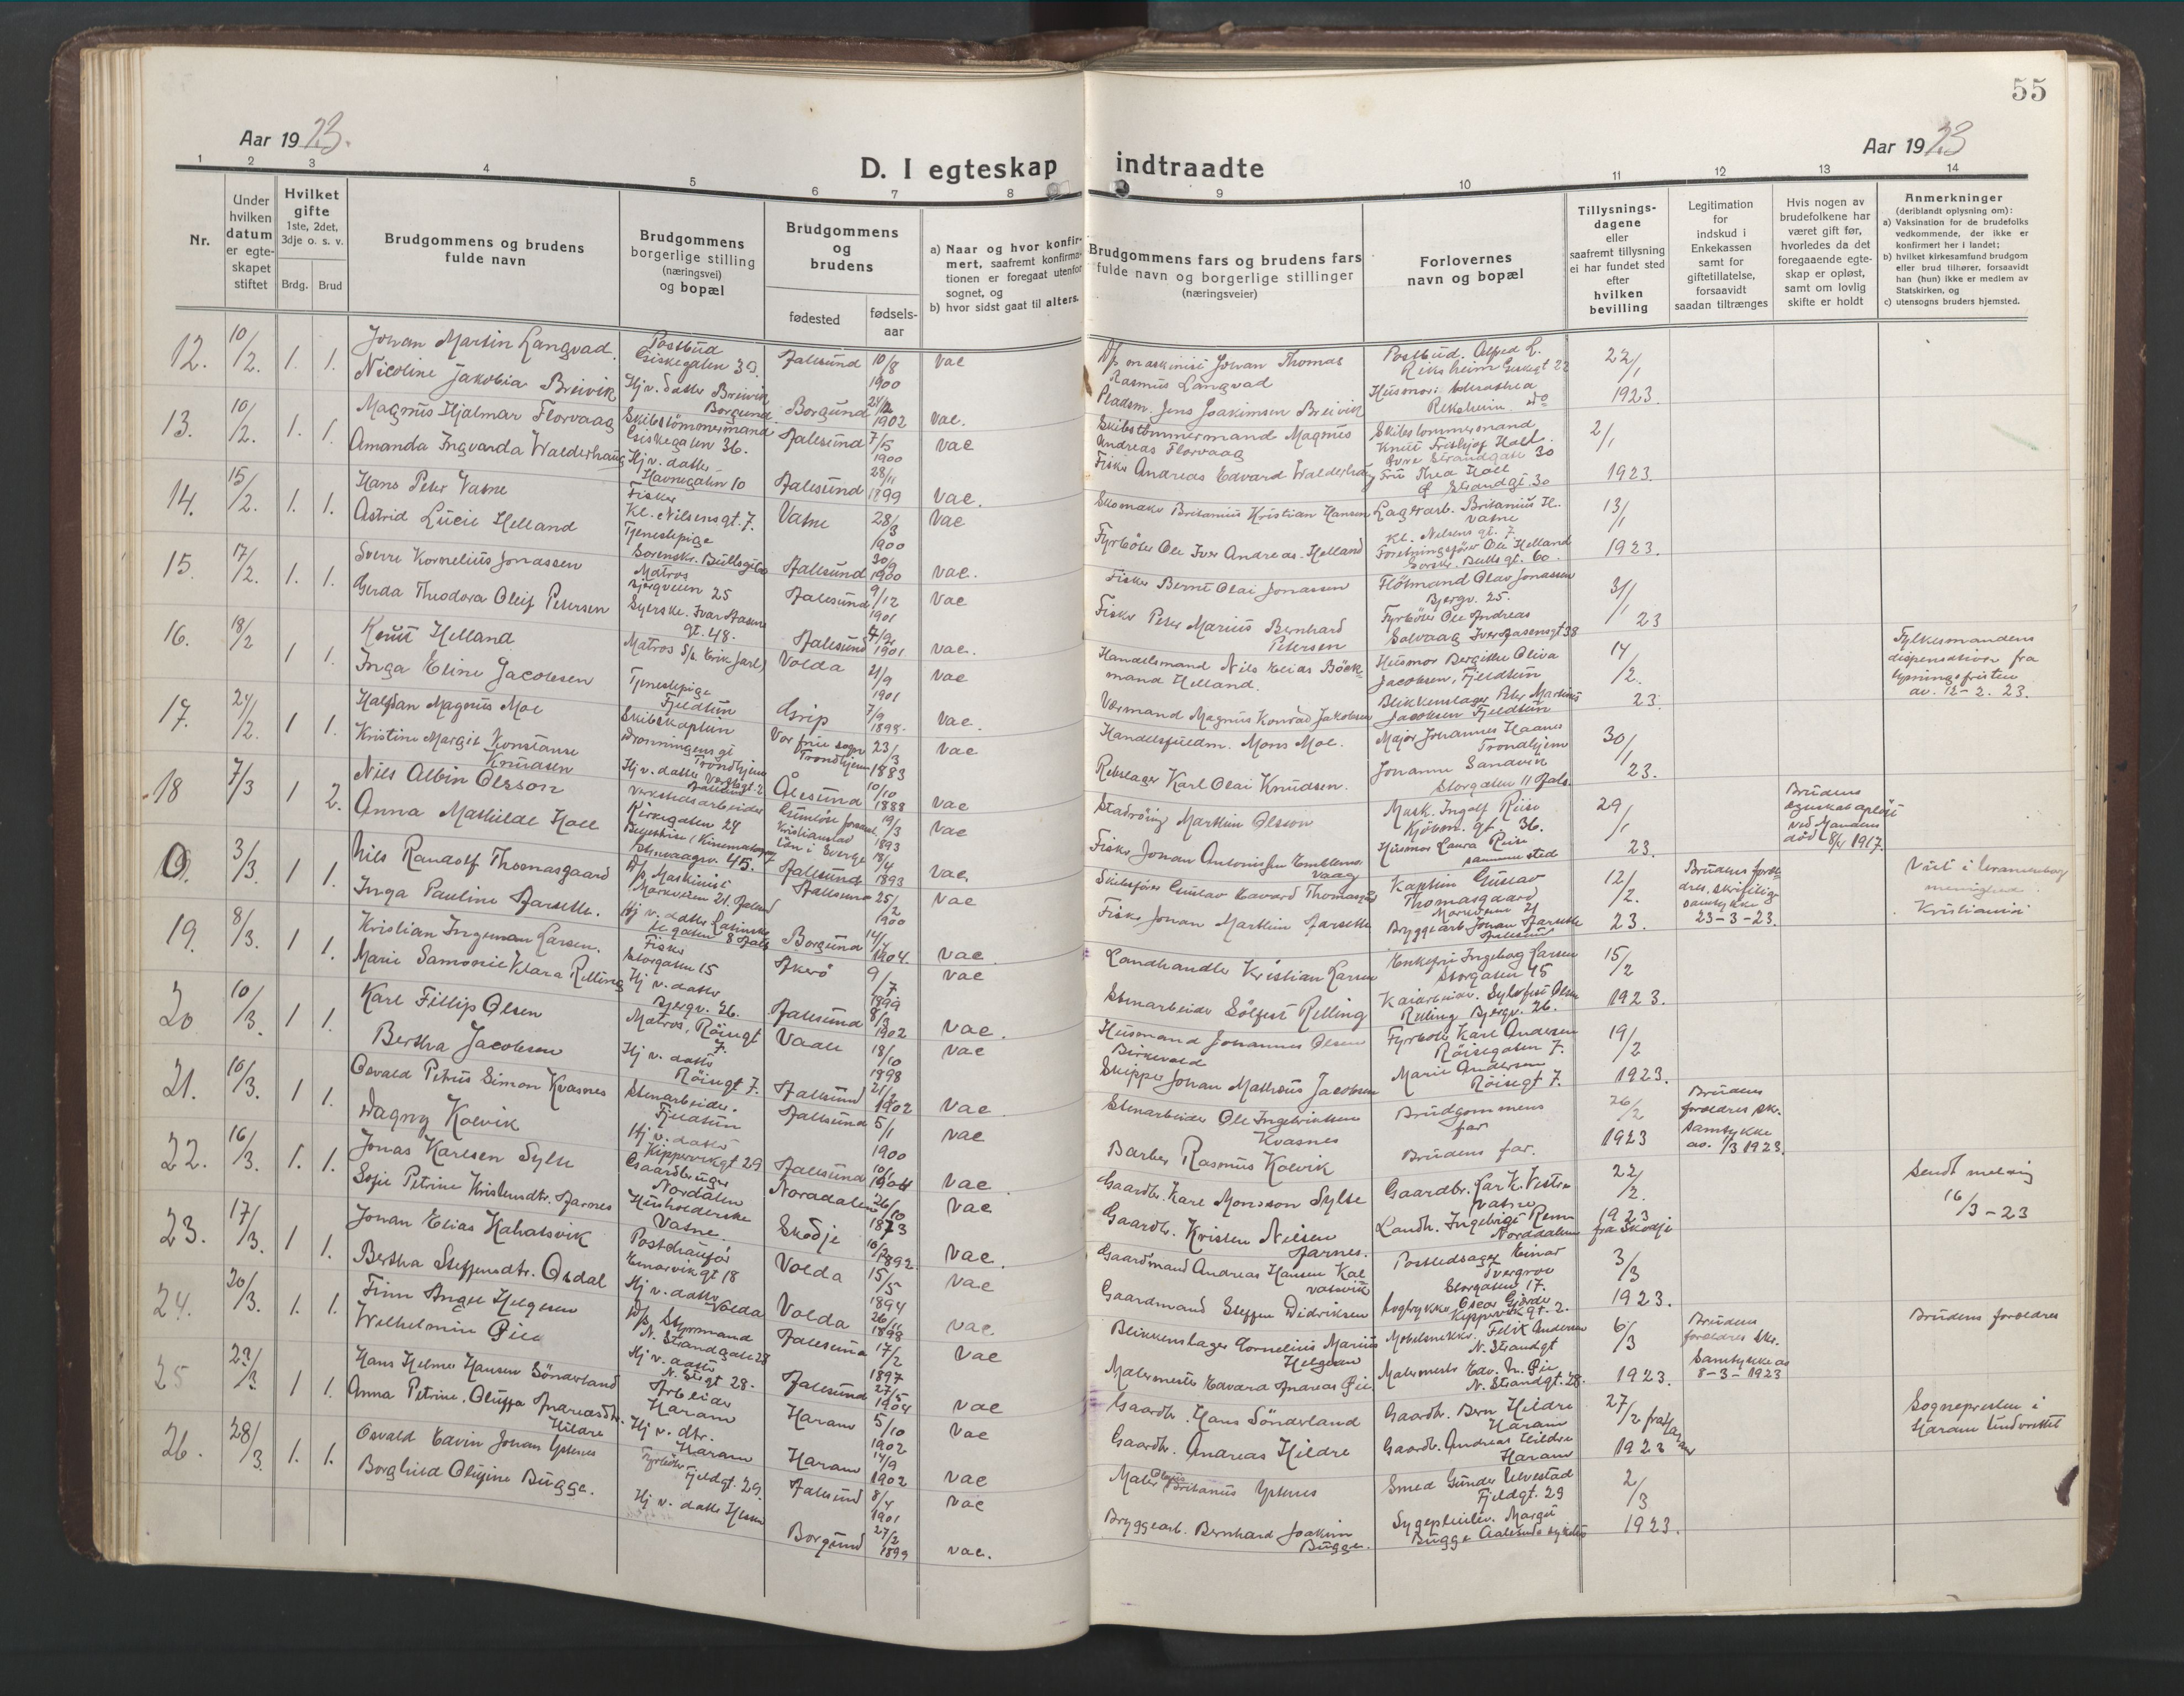 55
Aar 1923.
Aar 1923
D. I egteskap indtraadte
1 2 3 4 5 6 7 8 9 10 11 12 13 14
Nr.
Under hvilken datum er egteskapet stiftet
Hvilket gifte 1ste, 2det, 3dje o. s. v.
Brdg. Brud
Brudgommens og brudens fulde navn
Brudgommens borgerlige stilling (næringsvei) og bopæl
Brudgommens og brudens
fødested
fødsels-aar
a) Naar og hvor konfirmert, saafremt konfirmationen er foregaat utenfor sognet, og
b) hvor sidst gaat til alters.
Brudgommens fars og brudens fars fulde navn og borgerlige stillinger (næringsveier)
Forlovernes navn og bopæl
Tillysningsdagene eller saafremt tillysning ei har fundet sted efter hvilken bevilling
Legitimation for indskud i Enkekassen samt for giftetillatelse, forsaavidt saadan tiltrænges
Hvis nogen av brudefolkene har været gift før, hvorledes da det foregaaende egteskap er opløst, samt om lovlig skifte er holdt
Anmerkninger
(deriblandt oplysning om):
a) Vaksination for de brudefolks vedkommende, der ikke er konfirmert her i landet;
b) hvilket kirkesamfund brudgom eller brud tilhører, forsaavidt han (hun) ikke er medlem av Statskirken, og
c) utensogns bruders hjemsted.
12. 10/2. 1. 1. Johan Martin Langvad. Postbud Giskegaten 39. Aalesund 10/8 1900 vac
D/s maskinist Johan Thomas Rasmus Langvad
Postbud. Alfred L. Reksheim Giskegt 22
22/1 1923.
Nicoline Jakobia Breivik Hj v. datter Breivik Borgund Borgund 1902 vac.
Pladsm. Jens Joakimsen Breivik
Husmor: Reksheim do
13. 10/2. 1. 1. Magnus Hjalmar Florvaag Skibstömmermand Giskegaten 36. Aalesund 7/5 1900 vac
Skibstömmermand Magnus Andreas Florvaag
Skibstömmermand Knut Fritjof Holl. Övre Strandgate 30
2/1 1923.
Amanda Ingvarda Walderhaug Hj v. datter Havnegaten 10 Aalesund 28/11 1899 vac.
Fisker Andreas Edvard Walderhaug
Fru Thea Holl Ö Strandgt. 30
14. 15/2. 1. 1. Hans Peter Vatne Fisker Kl. Nilsens gt. 7. Vatne 28/3 1900 vac
Skomaker Britanius Kristian Hansen
Lagerarb. Britanius H. Vatne Kl. Nilsens gt. 7
13/1 1923.
Astrid Lucie Helland Tjenestepige Sorenskr. Bullsgt 60 Aalesund 30/9 1900 vac.
Fyrböter Ole Iver Andreas Helland
Forretningsförer Ole Helland Sorskr. Bulls gt. 60.
15. 17/2. 1. 1. Sverre Kornelius Jonassen Matros Bjergveien 25 Aalesund 9/12 1901 vac
Fisker Bernt Olai Jonassen
Flötmand Olav Jonassen Bjergv. 25.
31/1 23
Gerda Theodora Oleif Petersen Syerske. Ivar Aasens gt. 48. Aalesund 1901 vac.
Fisker Peter Marius Bernhard Petersen
Fyrböter Ole Andreas Solvaag Iver Aasensgt 38
16. 18/2 1 1. Knut Helland. Matros S/s. Erik Jarl) Volda 21/9 1901 vac
Handelsmand Nils Elias Böckmand Helland.
Husmor Bergitte Oliva Jacobsen, Fjeldtun
14/2. 23.
Fylkesmandens dispensation fra lysningsfristen av. 12-2. 23.
Inga Eline Jacobsen Tjenestepige Fjeldtun Grip 7/9 1898. vac.
Værmand Magnus Konrad Jakobsen
Blikkenslager Peter Martinus Jacobsen Fjeldtun
17. 24/2. 1 1. Halfdan Magnus Moe Skibskaptein Dronningens gt Trondhjem Vor frue sogn Trondhjem 23/3 1883 vac
Handelsfuldm. Mons Moe.
Major Johannes Haanes Trondhjem
30/1 23.
Kristine Margit Konstanse Knudsen Hj v. datter Aalesund Ålesund 10/10 1888 vac
Rebslager Karl Olai Knudsen.
Johanne Sandvik Storgaten 11 Aals.
18 7/3 1 2. Nils Albin Olsson Verkstedsarbeider Kirkegaten 24 Kristianstad län i Sverge 19/3 1893 vac
Stadröing Martin Olsson
Mask. Ingolf Reise Kjöbm. gt. 36.
29/1 23.
Brudens egteskap oplöst ved Mandens död 8/4 1917.
Anna Mathilde Holl Aalesund 18/4 1893 vac.
Fisker Johan Antonissen Emblemsvaag
Husmor Laura Reise samme sted
0. 3/3. 1 1. Nils Randolf Thomasgaard D/s Maskinist Morkveien 21. Aalesund Aalesund 25/2 1900 vac
Skibsförer Gustav Edvard Thomasgaard
Kaptein Gustav Thomasgaard Morkveien 21
12/2. 23.
Brudens foreldres. skriftlige samtykke 23-3-23.
menighed. Kristiania
Inga Pauline Aarseth. Hj v. datter Borgund 14/4 1904. vac.
Fisker Johan Martin Aarseth
Bryggearb Johan Aarseth Aalesund
19. 8/3. 1 1. Kristian Ingeman Larsen. Fisker Storgaten 15 Akerö 9/7 1899 vac
Landhandler Kristian Larsen
Enkefru Ingeborg Larsen Storgaten 15
15/2 1923.
Marie Samonie Klara Relling Hj v. datter Bjergv. 26. Aalesund 8/3 1902 vac.
Stenarbeider Sölfest Relling
Kaiarbeider. Sylvfest Olsen Relling Bjergv. 26.
20 10/3. 1 1. Karl Fillip Olsen Matros, Röisgt 7. Vaale 18/10 1898 vac
Husmand Johannes Olsen Birkevold
Fyrböter Karl Andersen Röisegaten 7.
19/2 1923.
Bertha Jacobsen Hj v. datter Röisgt 7. Aalesund 21/2 1902 vac.
Skipper Johan Mathæus Jacobsen
Marie Andersen Röisegt 7.
21. 16/3. 1 1. Osvald Petrus Simon Kvasnes Stenarbeider. Fjeldtun Aalesund 5/1 1900 vac
Stenarbeider Ole Ingebriktsen Kvasnes
Brudgommens far
26/2 1923
Brudens foreldres skr. samtykke av. 1/3 1923.
Dagny Kolvik Hj v. datter Kippervikgt 29 Aalesund 10/6 1904 vac.
Barber Rasmus Kolvik
Brudens far.
22. 16/3. 1. 1. Jonas Karlsen Sylte Gaardbruger Nordalen Norddalen 26/10 1873 vac
Gaardbr. Karl Monsson Sylte
Gaardbr. Lar K. Vestre Vatne
22/2. 1923 fra Skodje
Sendt melding 16/3-23
Sofie Petrine Kristensdtr. Aarnes Husholderske Vatne. Skodje 1892 vac.
Gaardbr. Kristen Nilsen Aarnes.
Landh. Ingebrigt Renn Norddalen
23. 17/3. 1 1. Johan Elias Kalvatsvik Postchaufför Einarvikgt 18 Volda 15/5 1894 vac
Gaardmand Andreas Hansen Kalvatsvik
Postedsager Einar Tvergrov Storgaten 17.
3/3 1923.
Bertha Steffensdtr. Osdal Hj v. datter Volda Volda 26/11 1898 vac.
Gaardmand Steffen Didriksen
Bogtrykker Oscar Gjörde Kippervikgt. 2.
24. 20/3. 1. 1. Finn Aage Helgesen D/s Styrmand N. Strandgate 28 Aalesund 17/2 1897 vac
Blikkenslager Cornelius Marius Helgesen
Mobelsnekker. Felix Andersen N. Strandgt
6/3 1923.
Brudens foreldres skr. Samtykke av 8-3-1923
Brudens foreldres
Wilhelmine Öie Hj v. datter N. Stgt 28. Aalesund 27/5 1904 vac
Malermester Edvard Andreas Öie
Malermester Edv. A. Öie N. Strandgt. 28.
25 23/3 1 1. Hans Helmer Hansen Sönderland Arbeider Haram Haram 5/10 1902 vac
Gaardbr. Hans Sönderland
Gaardbr. Bern Hildre Haram
27/2 fra Haram 1923
Sognepresten i Haram underrettet
Anna Petrine. Oluffa Andreasdtr. Hildre Hj v. dtr. Haram Haram 14/9 1902 vac
Gaardbr. Andreas Hildre
Gaardb. Andreas Hildre Haram
26. 28/3. 1. 1. Osvald Edvin Johan Ystenes Fyrböter Fjeldgt. 29. Aalesund 8/4 1901 vac
Maler Olaus Britanius Ystenes
Smed Gunder Ulvestad Fjeldgt. 29
2/3 1923.
Borghild Olufine Bugge. Hj v. datter Borgund 27/2 1899 vac.
Bryggearb. Bernhard Joakim Bugge.
Sygepleiersk. Margit Bugge Aalesunds sykehus